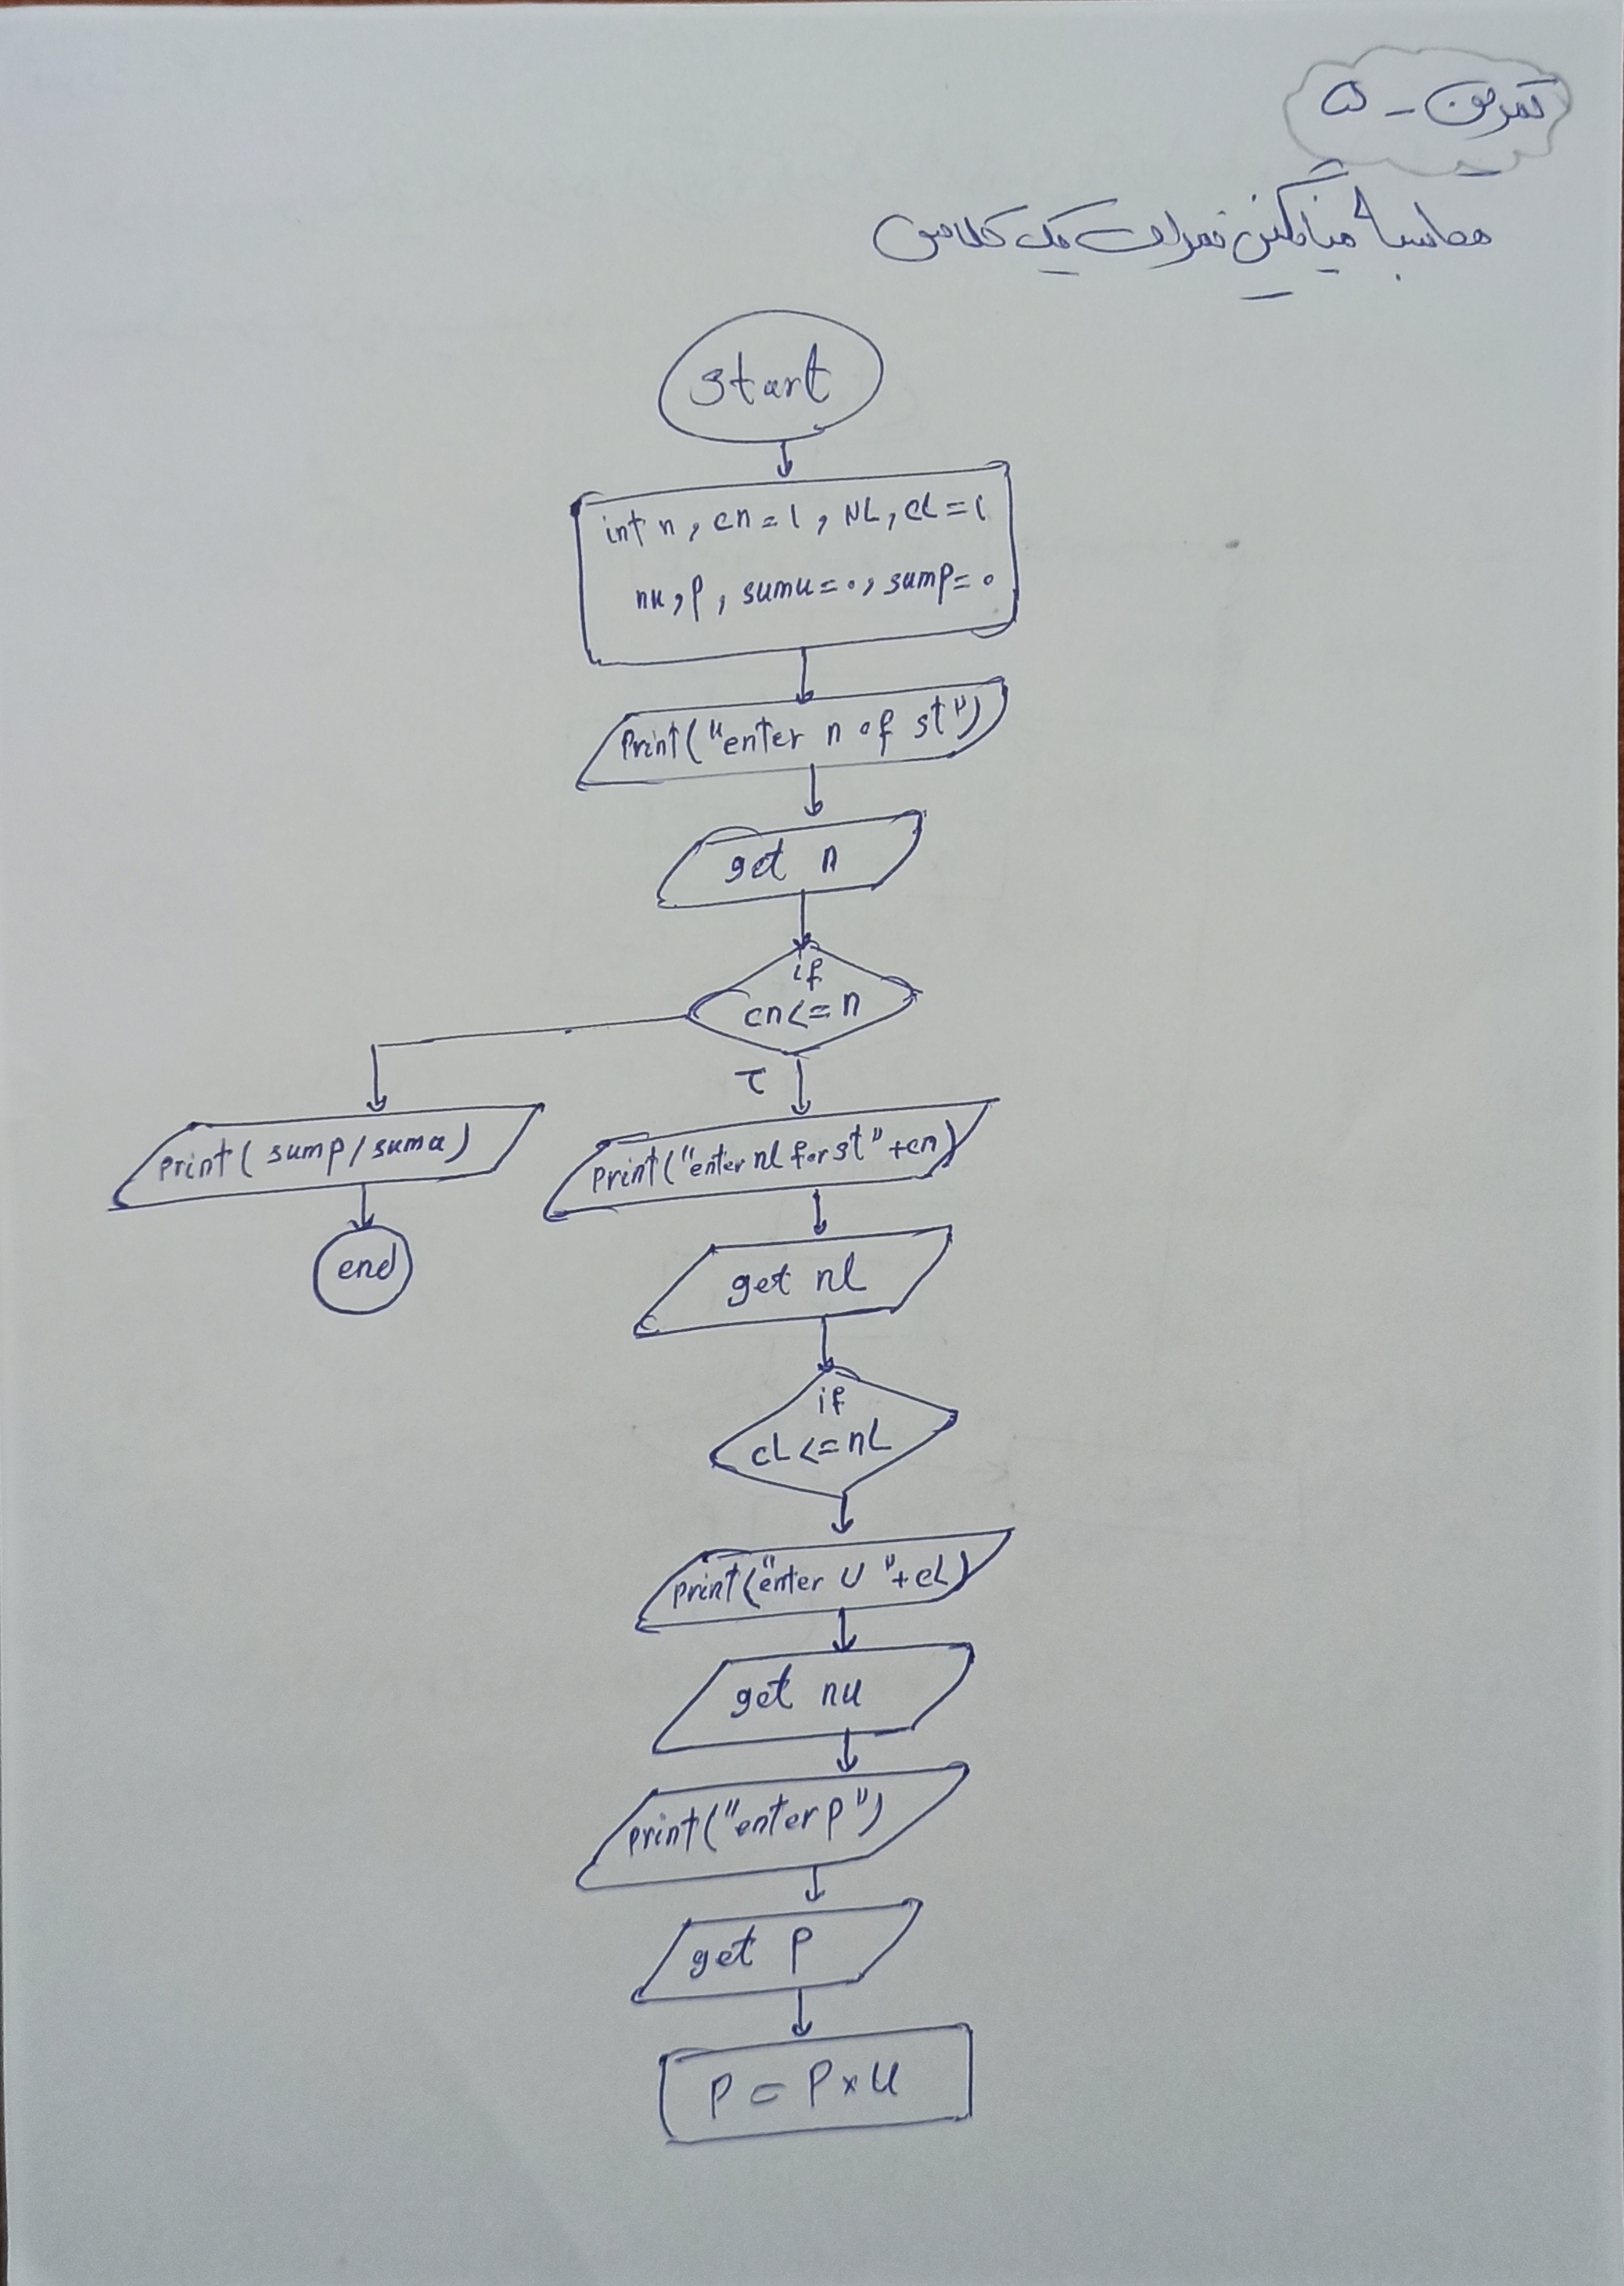 تمرین - ۵
محاسبه میانگین نمرات یک کلاس
start
int n, cn=1, NL, cL=1
nu, p, sumu=0, sump=0
Print("enter n of st")
get n
if
cn<=n
T
print(sump/sumu)
end
print("enter nl for st"+cn)
get nl
if
cL<=nL
print("enter U "+cL)
get nu
print("enter p")
get p
P = P×U